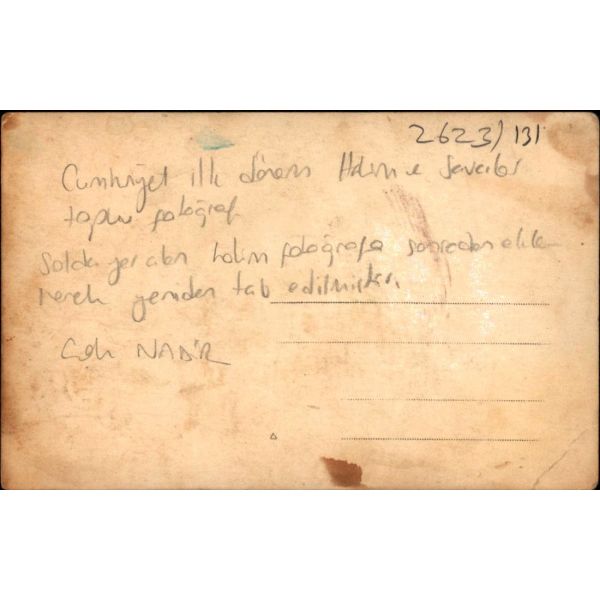 2623/131
Cumhuriyet ilk dönem Hakim ve Savcılar
toplu fotoğraf
Solda yer alan hakim fotoğrafa sonradan ekle
nerek yeniden tab edilmiştir.
Çok NADİR